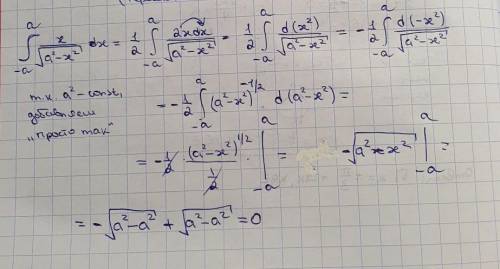 ∫_{-a}^{a} x/√(a²-x²) dx = 1/2 ∫_{-a}^{a} 2xdx/√(a²-x²) = 1/2 ∫_{-a}^{a} d(x²)/√(a²-x²) = -1/2 ∫_{-a}^{a} d(-x²)/√(a²-x²)
т.к. a² - const,
добавляем
"просто так"
= -1/2 ∫_{-a}^{a} (a²-x²)^{-1/2} · d(a²-x²) =
= -1/2 · (a²-x²)^{1/2} / (1/2) · |_{-a}^{a} = -√(a²-x²) |_{-a}^{a} =
= -√(a²-a²) + √(a²-a²) = 0